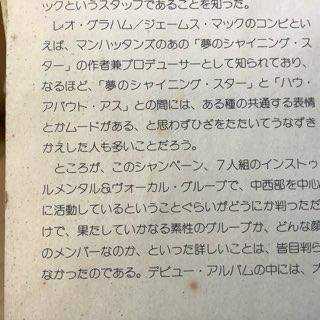 ックというスタッフであることを知った。
レオ・グラハム／ジェームス・マックのコンビとい
えば、マンハッタンズのあの「夢のシャイニング・ス
ター」の作者兼プロデューサーとして知られており、
なるほど、「夢のシャイニング・スター」と「ハウ・
アバウト・アス」との間には、ある種の共通する表情
とかムードがある、と思わずひざをたたいてうなずき
かえした人も多いことだろう。
ところが、このシャンペーン、７人組のインストゥ
ルメンタル&ヴォーカル・グループで、中西部を中心
に活動しているということぐらいがどうにか判っただ
けで、果たしていかなる素性のグループか、どんな顔
のメンバーなのか、といった詳しいことは、皆目判ら
なかったのである。デビュー・アルバムの中には、